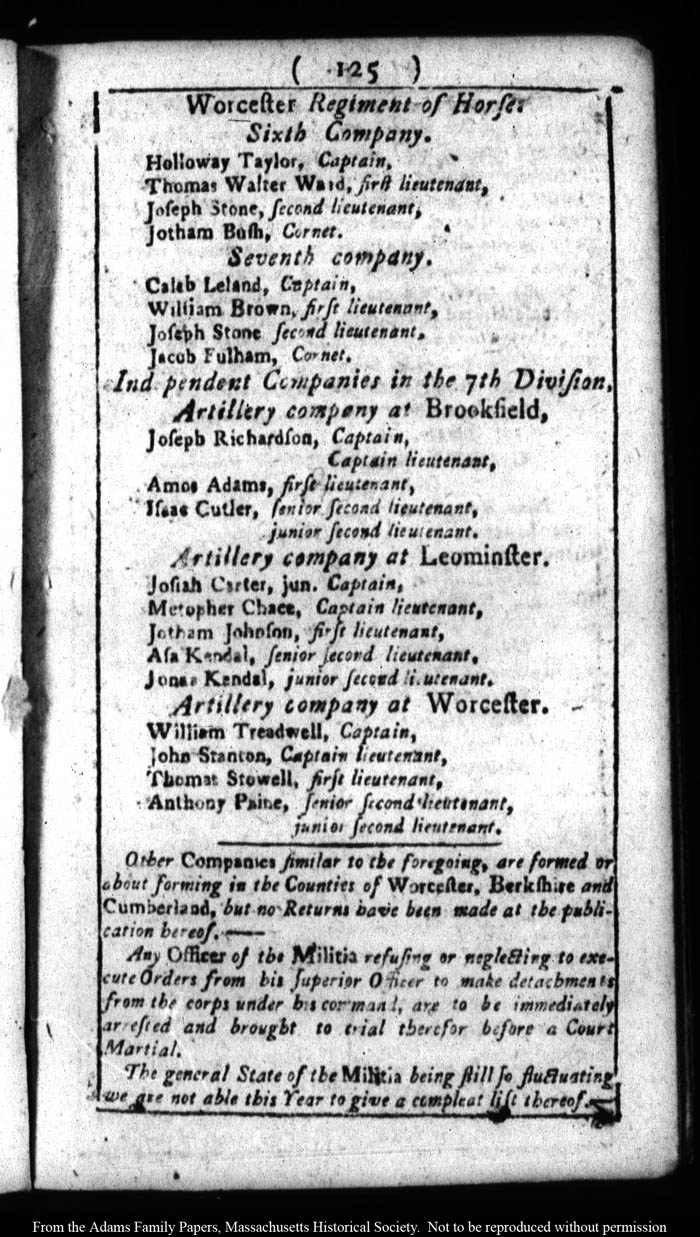 ( 125 )
Worceſter Regiment of Horſe:
Sixth Company.
Holloway Taylor, Captain,
Thomas Walter Ward, firſt lieutenant,
Joſeph Stone, ſecond lieutenant,
Jotham Buſh, Cornet.
Seventh company.
Caleb Leland, Captain,
William Brown, firſt lieutenant,
Joſeph Stone ſecond lieutenant,
Jacob Fulham, Cornet.
Ind pendent Companies in the 7th Diviſion,
Artillery company at Brookfield,
Joſeph Richardſon, Captain,
Captain lieutenant,
Amos Adams, firſt lieutenant,
Iſaac Cutler, ſenior ſecond lieutenant,
junior ſecond lieutenant.
Artillery company at Leominſter.
Joſiah Carter, jun. Captain,
Metopher Chace, Captain lieutenant,
Jotham Johnſon, firſt lieutenant,
Aſa Kendal, ſenior ſecond lieutenant,
Jonas Kendal, junior ſecond lieutenant.
Artillery company at Worceſter.
William Treadwell, Captain,
John Stanton, Captain lieutenant,
Thomas Stowell, firſt lieutenant,
Anthony Paine, ſenior ſecond lieutenant,
junior ſecond lieutenant.
Other Companies ſimilar to the foregoing, are formed or
about forming in the Counties of Worceſter, Berkſhire and
Cumberland, but no Returns have been made at the publi-
cation hereof.——
Any Officer of the Militia refuſing or neglecting to exe-
cute Orders from his ſuperior Officer to make detachments
from the corps under his command, are to be immediately
arreſted and brought to trial therefor before a Court
Martial.
The general State of the Militia being ſtill ſo fluctuating
we are not able this Year to give a compleat liſt thereof.
From the Adams Family Papers, Massachusetts Historical Society. Not to be reproduced without permission